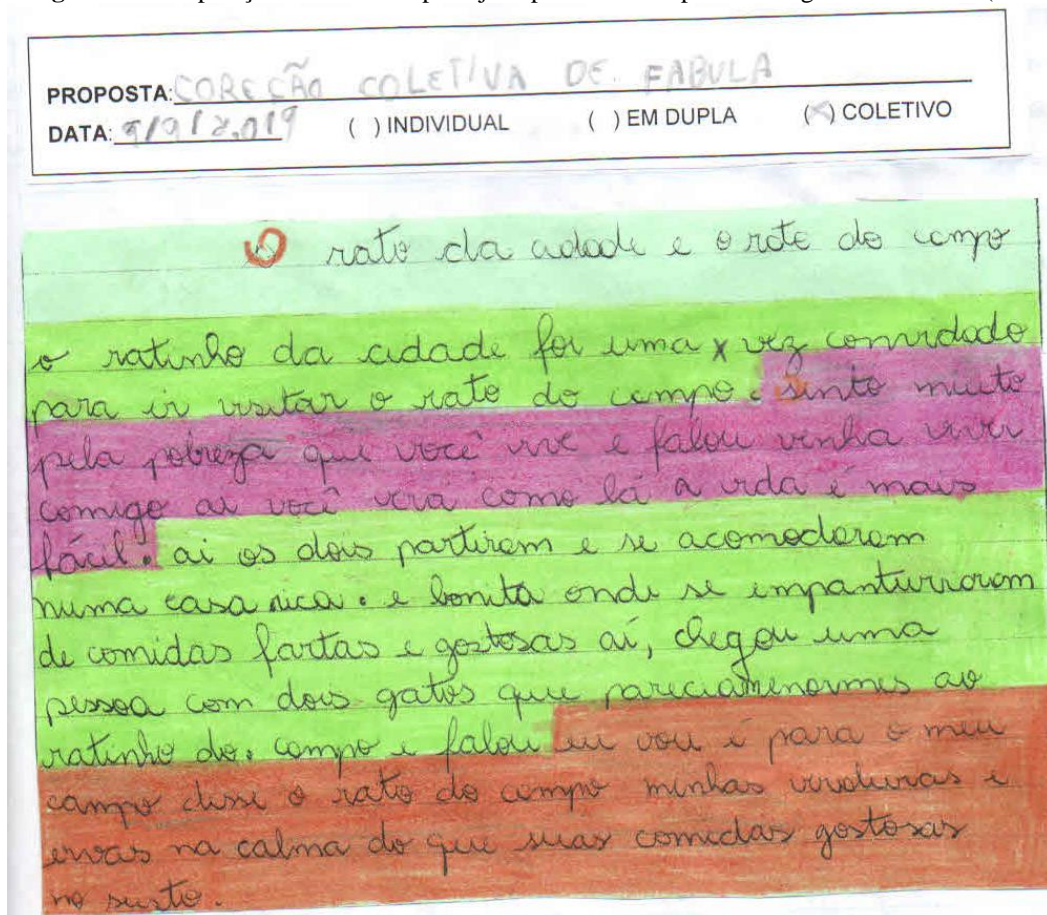 PROPOSTA: CORECÃO COLETIVA DE FABULA
DATA: 9/9/2.019 ( ) INDIVIDUAL ( ) EM DUPLA (X) COLETIVO
O rato da cidade e o rato do campo
o ratinho da cidade foi uma x vez convidado
para ir visitar o rato do campo. Sinto muito
pela pobreza que você vive e falou venha viver
comigo ai você vera como lá a vida é mais
fácil. ai os dois partiram e se acomodaram
numa casa rica. e bonita onde se impanturraram
de comidas fartas e gostosas aí, chegou uma
pessoa com dois gatos que pareciamenormes ao
ratinho do. campo e falou eu vou é para o meu
campo disse o rato do campo minhas verduras e
ervas na calma do que suas comidas gostosas
no susto.